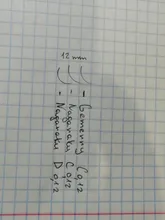 12 mm
- Gemerry C 0,12
- Nagaraku C 0,12
- Nagaraku D 0,12